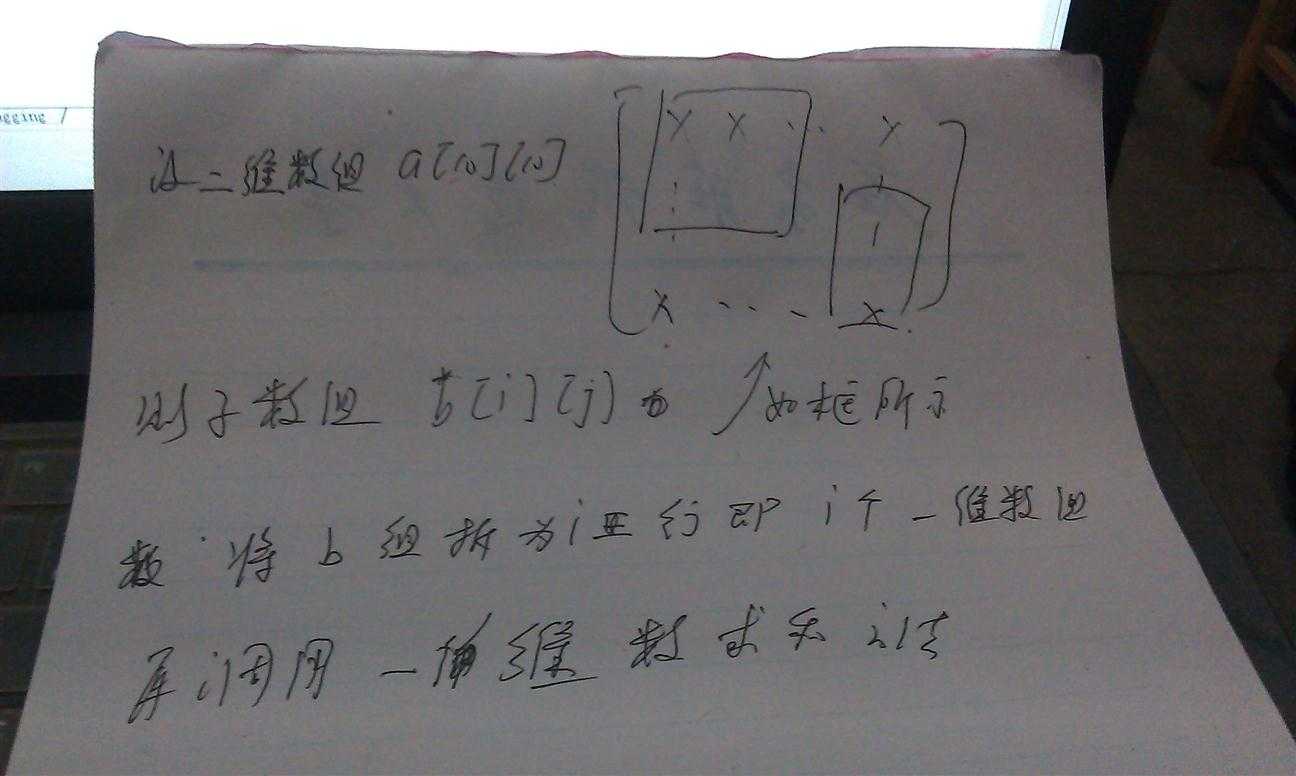 设二维数组 a[10][10]
X X ... X
X ... X
则子数组 b[i][j] 为 ↗如框所示
数 将 b 组拆为 i 行即 i个一维数组
再调用一维 数求和法